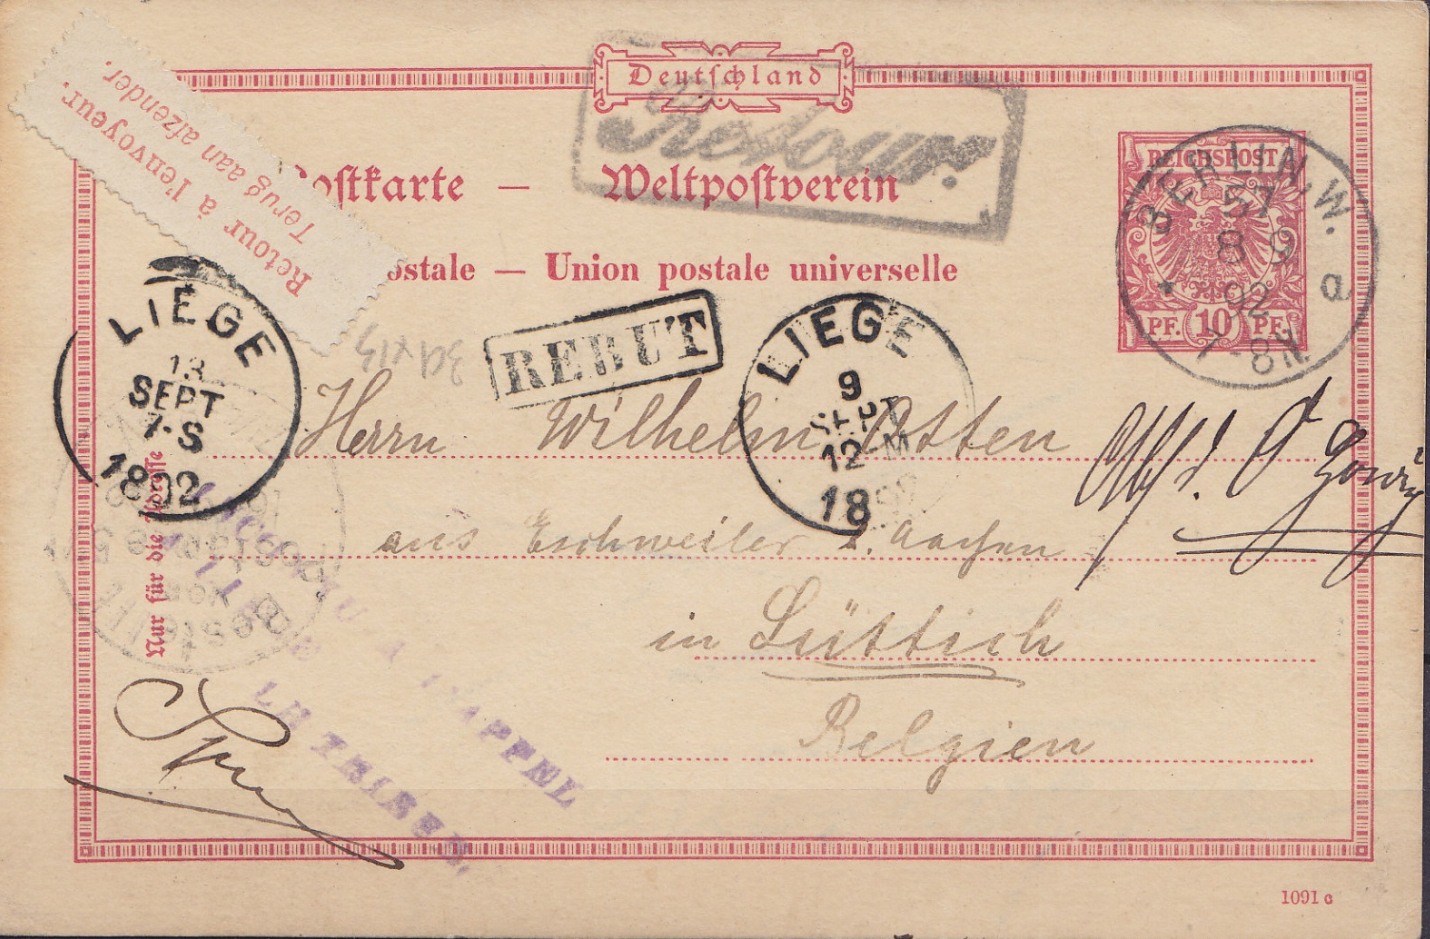 Deutschland
Retour.
Retour à l'envoyeur.
Terug aan afzender.
Postkarte — Weltpostverein
postale — Union postale universelle
REICHSPOST
PF. 10 PF.
BERLIN, W.
57
8 9
92
7-8N
a
REBUT
LIEGE
13
SEPT
7-S
1892
LIEGE
9
SEPT
12-M
1892
Herrn Wilhelm Otten
aus Eschweiler b. Aachen
in Lüttich
Belgien
Nur für die Adresse
Bestellt
vom
Postamte
APPEL
1091 c